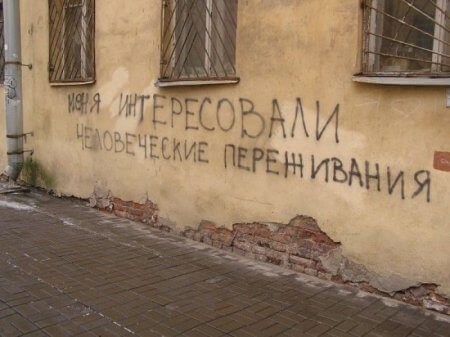 меня интересовали
человеческие переживания